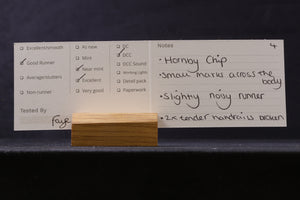 Excellent/smooth
Good Runner
Average/stutters
Non-runner
Tested By
Faye
As new
Mint
Near mint
Excellent
Very good
DC
DCC
DCC Sound
Working Lights
Detail pack
Paperwork
Notes
4
• Hornby Chip
• Small marks across the
body
• Slightly noisy runner
• 2x tender handrails broken